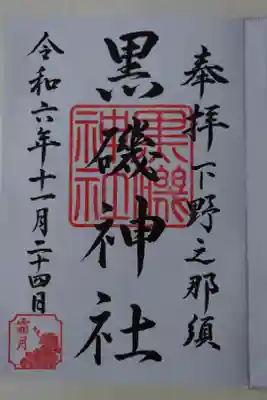 奉拝 下野之那須
黒磯神社
黒磯神社
令和六年十一月二十四日
霜月